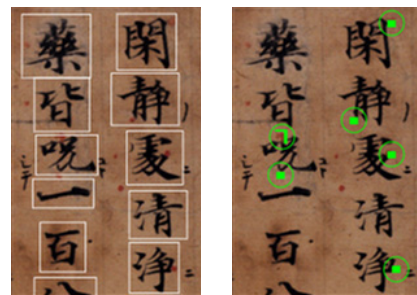 閑静處清浄
藥皆呪一百
閑静處清浄
藥皆呪一百